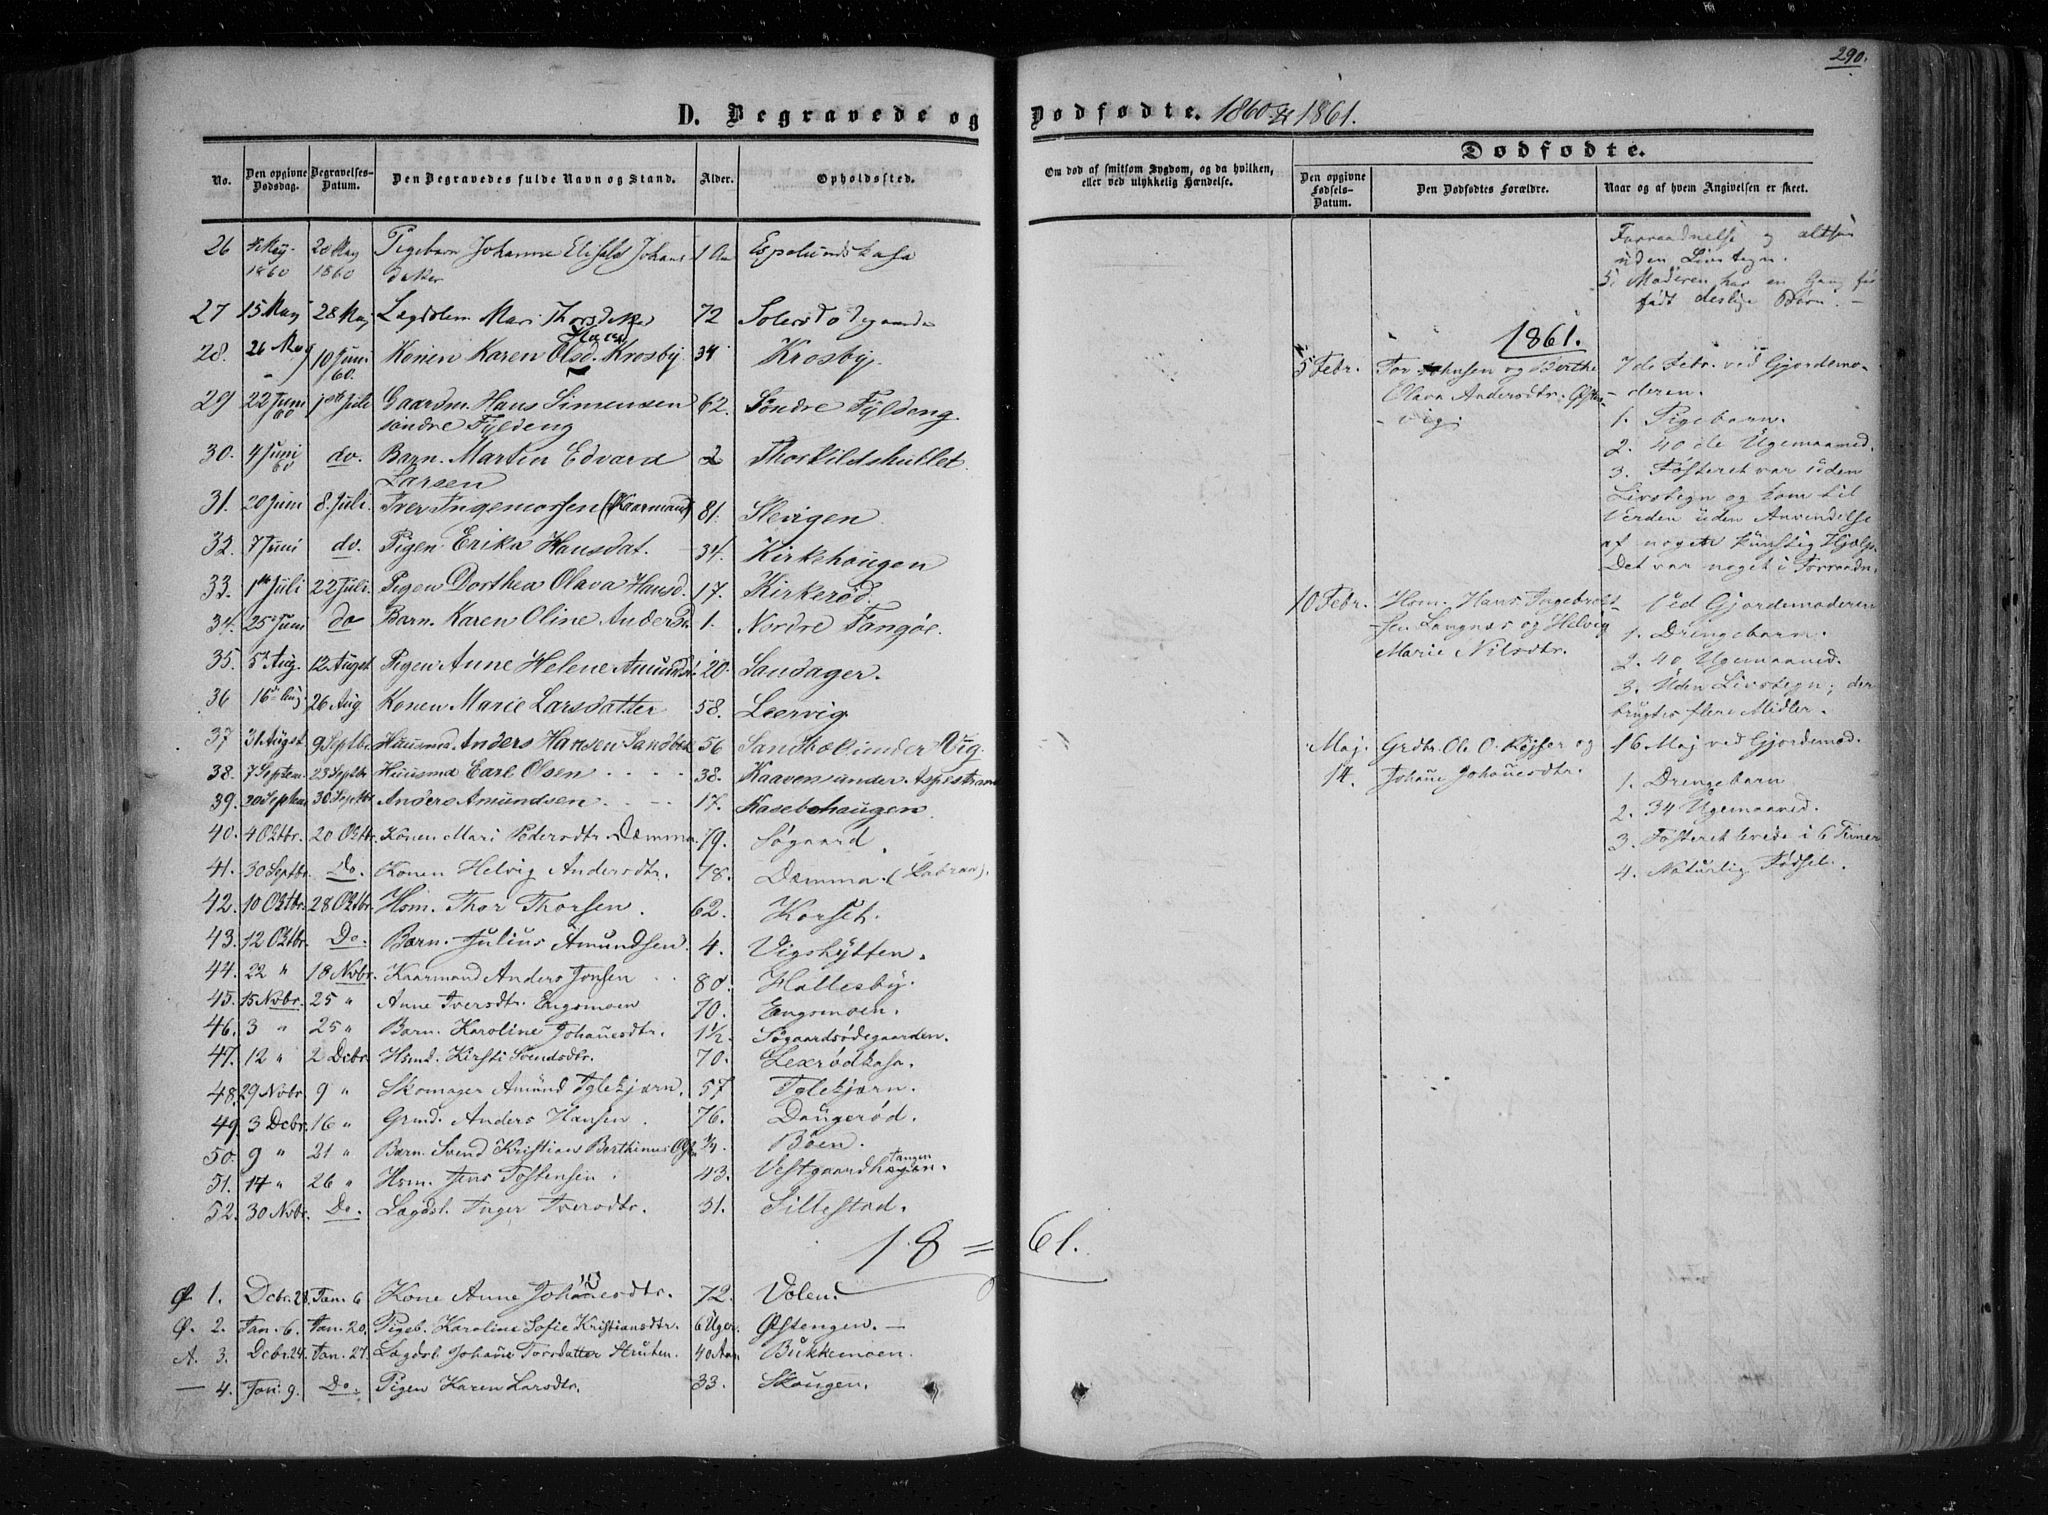 290.
D. Begravede og Dødfødte. 1860 & 1861.
No. Den opgivne Dødsdag. Begravelses-Datum. Den Begravedes fulde Navn og Stand. Alder. Opholdssted.
26 Maj 1860 20 Maj 1860 Pigebarn Johanne 1 Aar
27 15 Maj 28 Maj Lægdslem Mari 72
28. 26 Maj 10 Juni 60. Konen Karen Olsd. Krosby 34 Krosby
29 22 Juni 60 1ste Juli Gaardm. Hans Simensen 62. Søndre Fyldeng
søndre Fyldeng
30. 4 Juni 60 do. Barn. Martin Edvard 2 Thorkildshullet
Larsen
31. 20 Juni 8 Juli. Iver Ingemorsen (Kaarmand) 81. Slevigen
32. 7 Juni do. Pigen Erika Hansdat. 34. Kirkehougen
33. 1ste Juli 22 Juli. Pigen Dorthea Olava Hansd. 17. Kirkerød.
34. 25 Juni do Barn. Karen Oline Anders 1. Nordre Tangøe.
35. 5 Aug. 12 August Pigen Anne Helene Amunds 20. Sandager.
36 16 Aug 26 Aug Konen Marie Larsdatter 58. Leervig
37 31 August 9 Septbr. Huusmd. Anders Hansen Sandbek 56 Sandbæk under Vig.
38. 7 Septem 23 Septbr Huusmd Carl Olsen . . . . 38. Kaaven under Aspestrand
39. 20 Septem 30 Septbr Anders Amundsen . . . . 17. Kasebohaugen.
40. 4 Oktbr. 20 Oktbr. Konen Mari Pedersdtr. Dæmma 79. Søgaard.
41. 30 Septbr. Do. Konen Helvig Andersdtr. 78. Dæmma.
42. 10 Oktbr. 28 Oktbr. Hsm. Thor Thorsen. 62. Korset.
43. 12 Oktbr. Do. Barn. Julius Amundsen. 4. Vigshytten.
44. 22 " 18 Novbr. Kaarmand Anders Jonsen . . 80. Hallesby.
45. 15 Novbr. 25 " Anne Iversdtr. Engsmoen 70. Engsmoen.
46. 3 " 25 " Barn. Karoline Johannesdtr. 1½. Søgaardsødegaarden.
47. 12 " 2 Dcbr. Hsmd. Kirsti Svendsdtr. 70. Lexrødkasa.
48. 29 Novbr. 9 " Skomager Amund Iglekjærn. 57 Iglekjærn.
49. 3 Dcbr. 16 " Grmd. Anders Hansen. 76. Daugerød.
50. 9 " 21 " Barn. Svend Kristian Berthinus Bøen.
51. 14 " 26 " Hsm. Jens Tostensen. 43. Vestgaardhagen. Tangen
52. 30 Novbr. Do. Lægdsl. Inger Iversdtr. 31. Sillestad.
18 = 61.
Ø 1. Dcbr. 28. Jan. 6 Kone Anne Johanesdtr. 72. Volen.
Ø. 2. Jan. 6. Jan. 20. Pigeb. Karoline Sofie Kristiansdtr. 6 Uger. Østengen. —
A. 3. Dcbr. 24. Jan. 27. Lægdsl. Johane Torsdatter Struten. 40 Aar Bukkemoen.
— 4. Jan. 9. Do. Pigen Karen Larsdtr. 33. Skougen.
Om død af smitsom Sygdom, og da hvilken,
eller ved ulykkelig Hændelse.
Dødfødte.
Den opgivne Fødsels-Datum. Den Dødfødtes Forældre. Naar og af hvem Angivelsen er skeet.
Forraadnelse og altsaa
uden Livstegn.
5. Moderen har en Gang før
født deslige Børn. —
1861.
5 Febr. Tor Johnsen og Berthe 7de Febr. ved Gjordemo-
Olava Andersdtr. Østen- deren.
vig. 1. Pigebarn.
2. 40de Ugemaaned.
3. Fosteret var uden
Livstegn og kom til
Verden uden Anvendelse
af nogen kunstig Hjælp.
Det var noget i Forraadn.
10 Febr. Hsm. Hans Ingebret- Ved Gjordemoderen
sen Langnæs og Helvig 1. Drengebarn.
Marie Nilsdtr. 2. 40 Ugemaaned.
3. Uden Livstegn; der
brugtes flere Midler.
Maj Grdbr. Ole O. Røjser og 16 Maj ved Gjordemod.
14. Johane Johanesdtr. 1. Drengebarn
2. 34 Ugemaaned.
3. Fosteret levede i 6 Timer
4. Naturlig Fødsel.